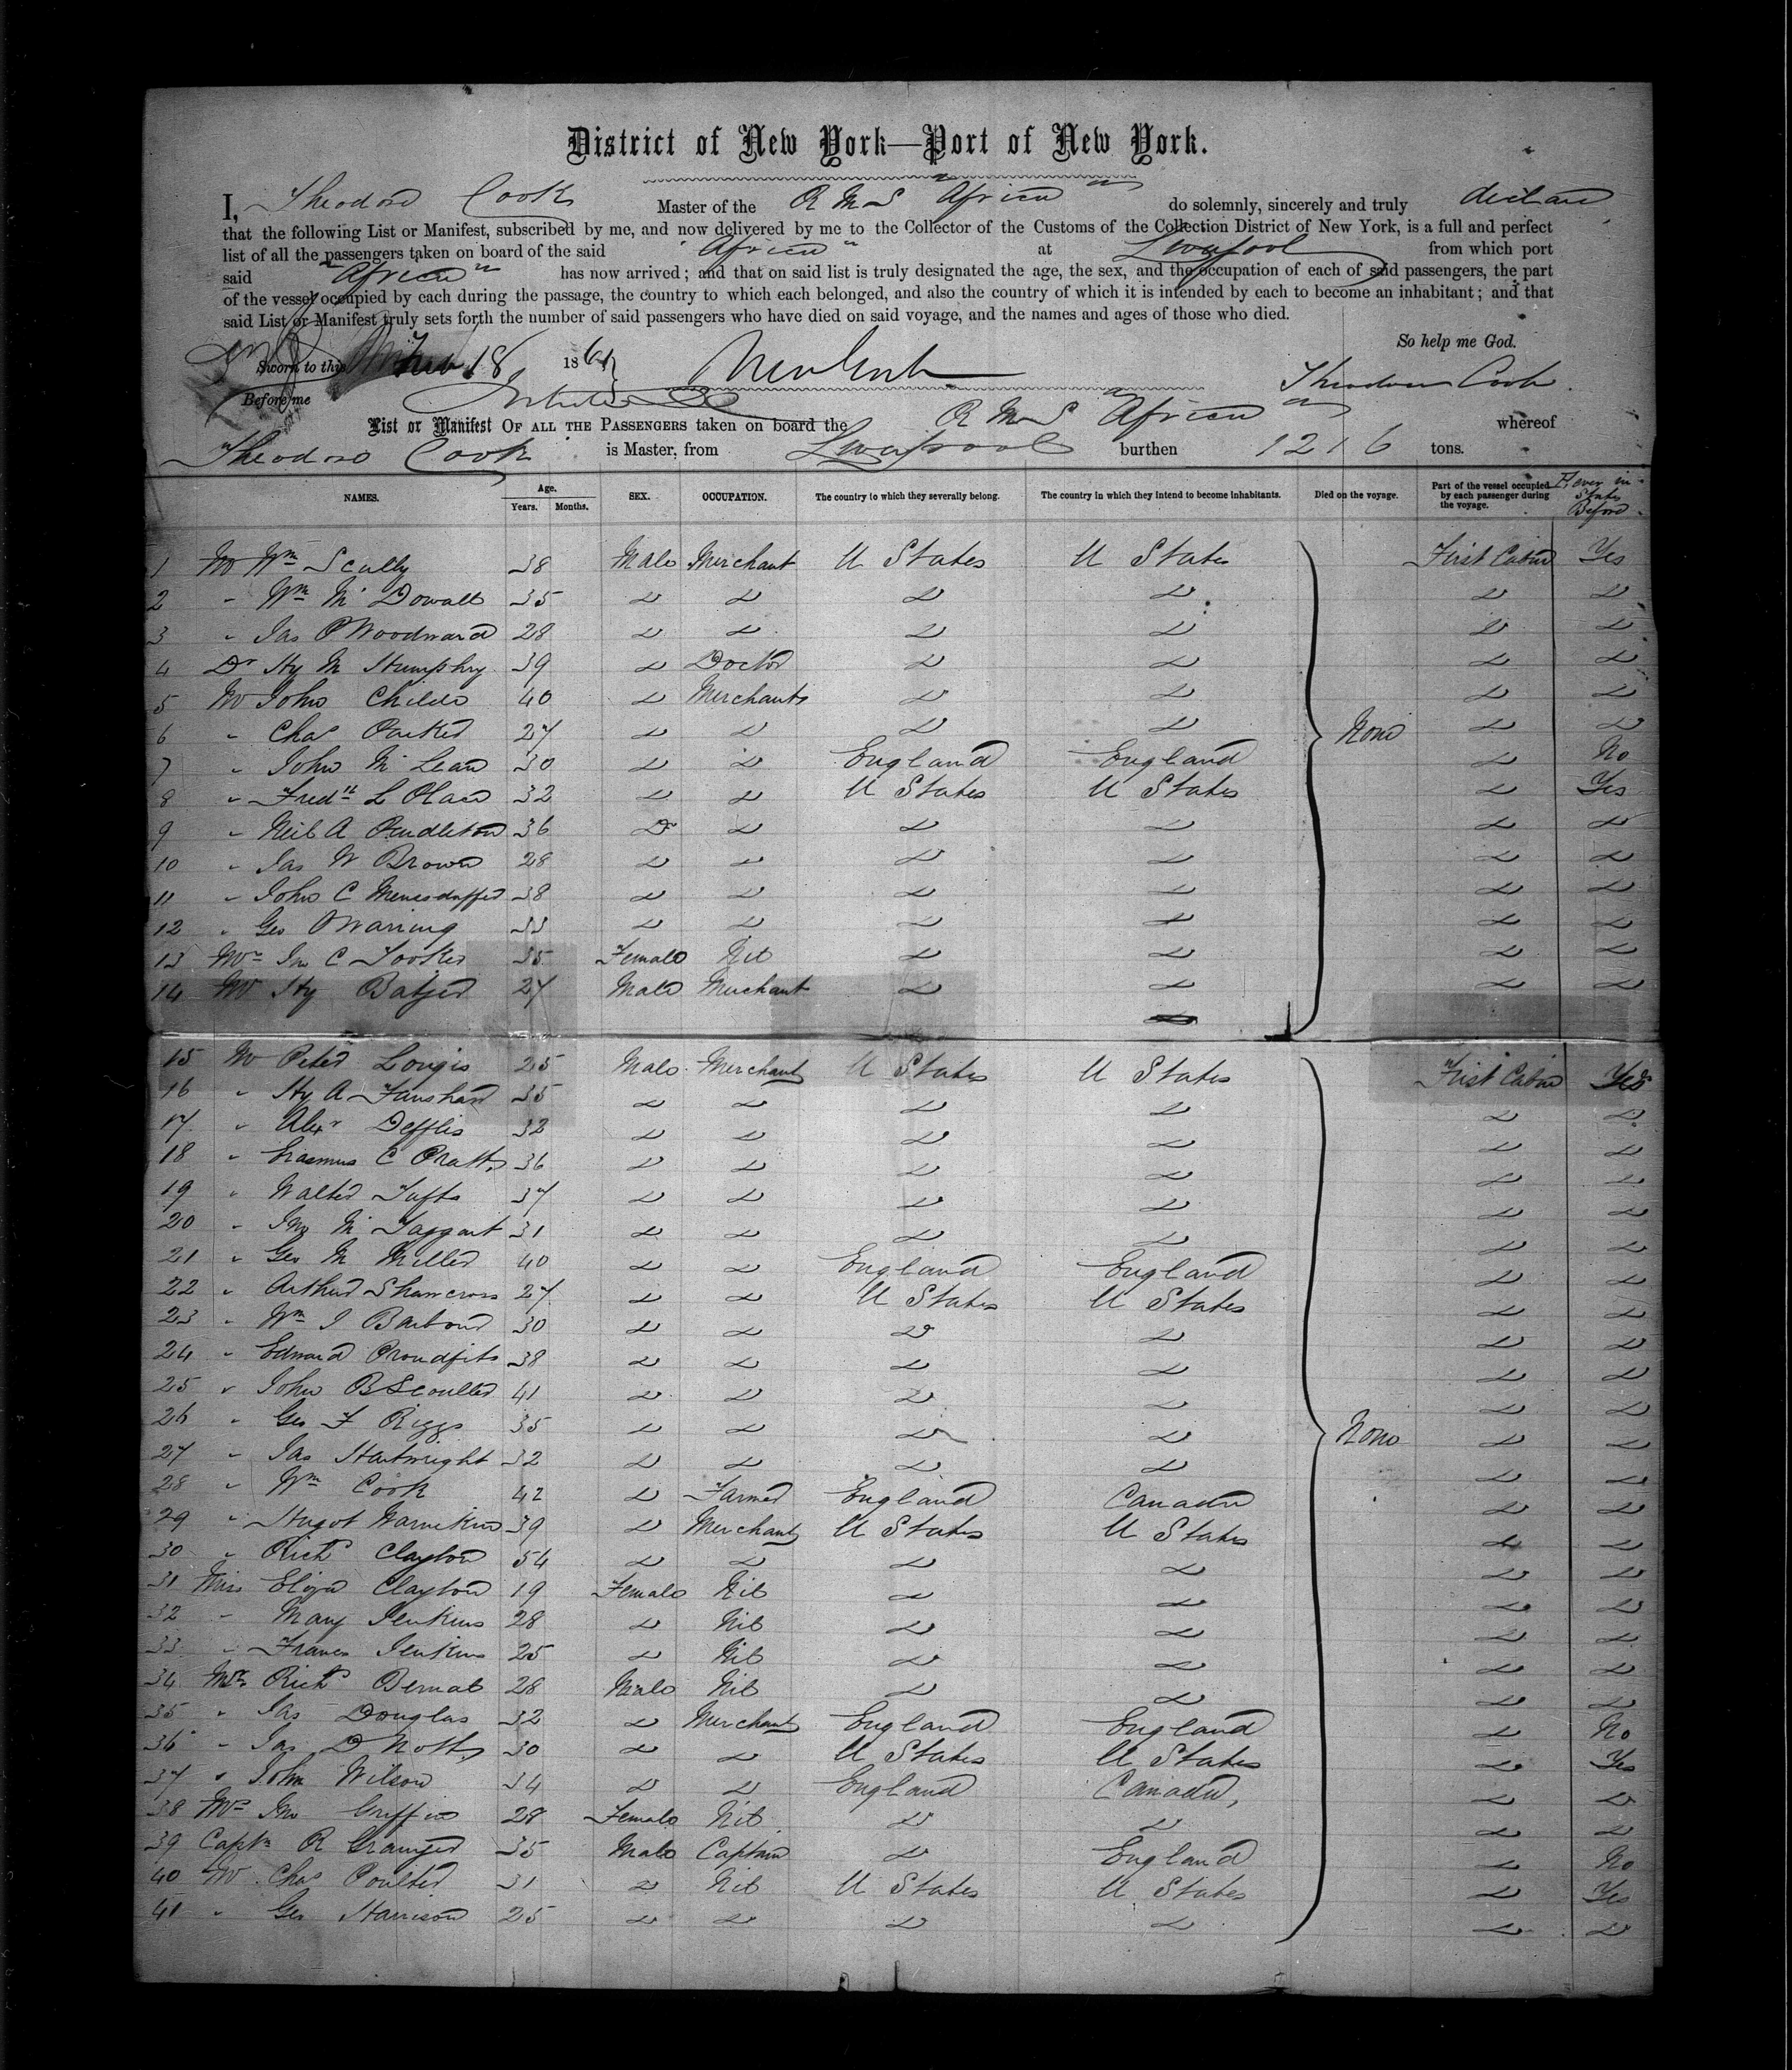 District of New York—Port of New York.
I, Theodore Cook Master of the R M S "Africa" do solemnly, sincerely and truly declare
that the following List or Manifest, subscribed by me, and now delivered by me to the Collector of the Customs of the Collection District of New York, is a full and perfect
list of all the passengers taken on board of the said "Africa" at Liverpool from which port
said "Africa" has now arrived; and that on said list is truly designated the age, the sex, and the occupation of each of said passengers, the part
of the vessel occupied by each during the passage, the country to which each belonged, and also the country of which it is intended by each to become an inhabitant; and that
said List or Manifest truly sets forth the number of said passengers who have died on said voyage, and the names and ages of those who died.
So help me God.
Sworn to this 18, 1861 Theodore Cook
Before me
List or Manifest OF ALL THE PASSENGERS taken on board the R M S "Africa" whereof
Theodore Cook is Master, from Liverpool burthen 1216 tons.
NAMES. Age. Years. Months. SEX. OCCUPATION. The country to which they severally belong. The country in which they intend to become inhabitants. Died on the voyage. Part of the vessel occupied by each passenger during the voyage. If ever in States Before
1 Mr Wm Scully 38 Male Merchant U States U States First Cabin Yes
2 " Wm Mc Dowall 35 " " " " " "
3 " Jas P Woodward 28 " " " " " "
4 Dr Hy M Humphry 39 " Doctor " " " "
5 Mr John Childs 40 " Merchants " " " "
6 " Chas Parker 27 " " " " None " "
7 " John Mc Lean 30 " " England England " No
8 " Fredk L Olar 32 " " U States U States " Yes
9 " Neil A Pendleton 36 Do " " " " "
10 " Jas W Brown 28 " " " " " "
11 " John C 38 " " " " " "
12 " Geo Waring 33 " " " " " "
13 Mrs Jno C Tooker 35 Female Nil " " " "
14 Mr Hy Batjer 27 Male Merchant " " " "
15 Mr Peter Longis 25 Male Merchant U States U States First Cabin Yes
16 " Hy A Fanshaw 35 " " " " " "
17 " Alexr Defflis 32 " " " " " "
18 " Erasmus C Pratt 36 " " " " " "
19 " Walter Tufts 37 " " " " " "
20 " Jno Mc Taggart 31 " " " " " "
21 " Geo M Miller 40 " " England England " "
22 " Arthur Shawcross 27 " " U States U States " "
23 " Wm J Barbour 30 " " " " " "
24 " Edward Proudfits 38 " " " " " "
25 " John B Scoulter 41 " " " " " "
26 " Geo F Riggs 35 " " " " None " "
27 " Jas Hartwright 32 " " " " " "
28 " Wm Cook 42 " Farmer England Canada " "
29 " Hugot Warnekin 39 " Merchant U States U States " "
30 " Richd Clayton 54 " " " " " "
31 Miss Eliza Clayton 19 Female Nil " " " "
32 " Mary Jenkins 28 " Nil " " " "
33 " Frances Jenkins 25 " Nil " " " "
34 Mr Richd Bernal 28 Male Nil " " " "
35 " Jas Douglas 32 " Merchant England England " No
36 " Jas D Nott 30 " " U States U States " Yes
37 " John Wilson 34 " " England Canada, " "
38 Mrs Jno Griffin 28 Female Nil " " " "
39 Captn R Granger 35 Male Captain " England " No
40 Mr Chas Poulter 31 " Nil U States U States " Yes
41 " Geo Harrison 25 " " " " " "